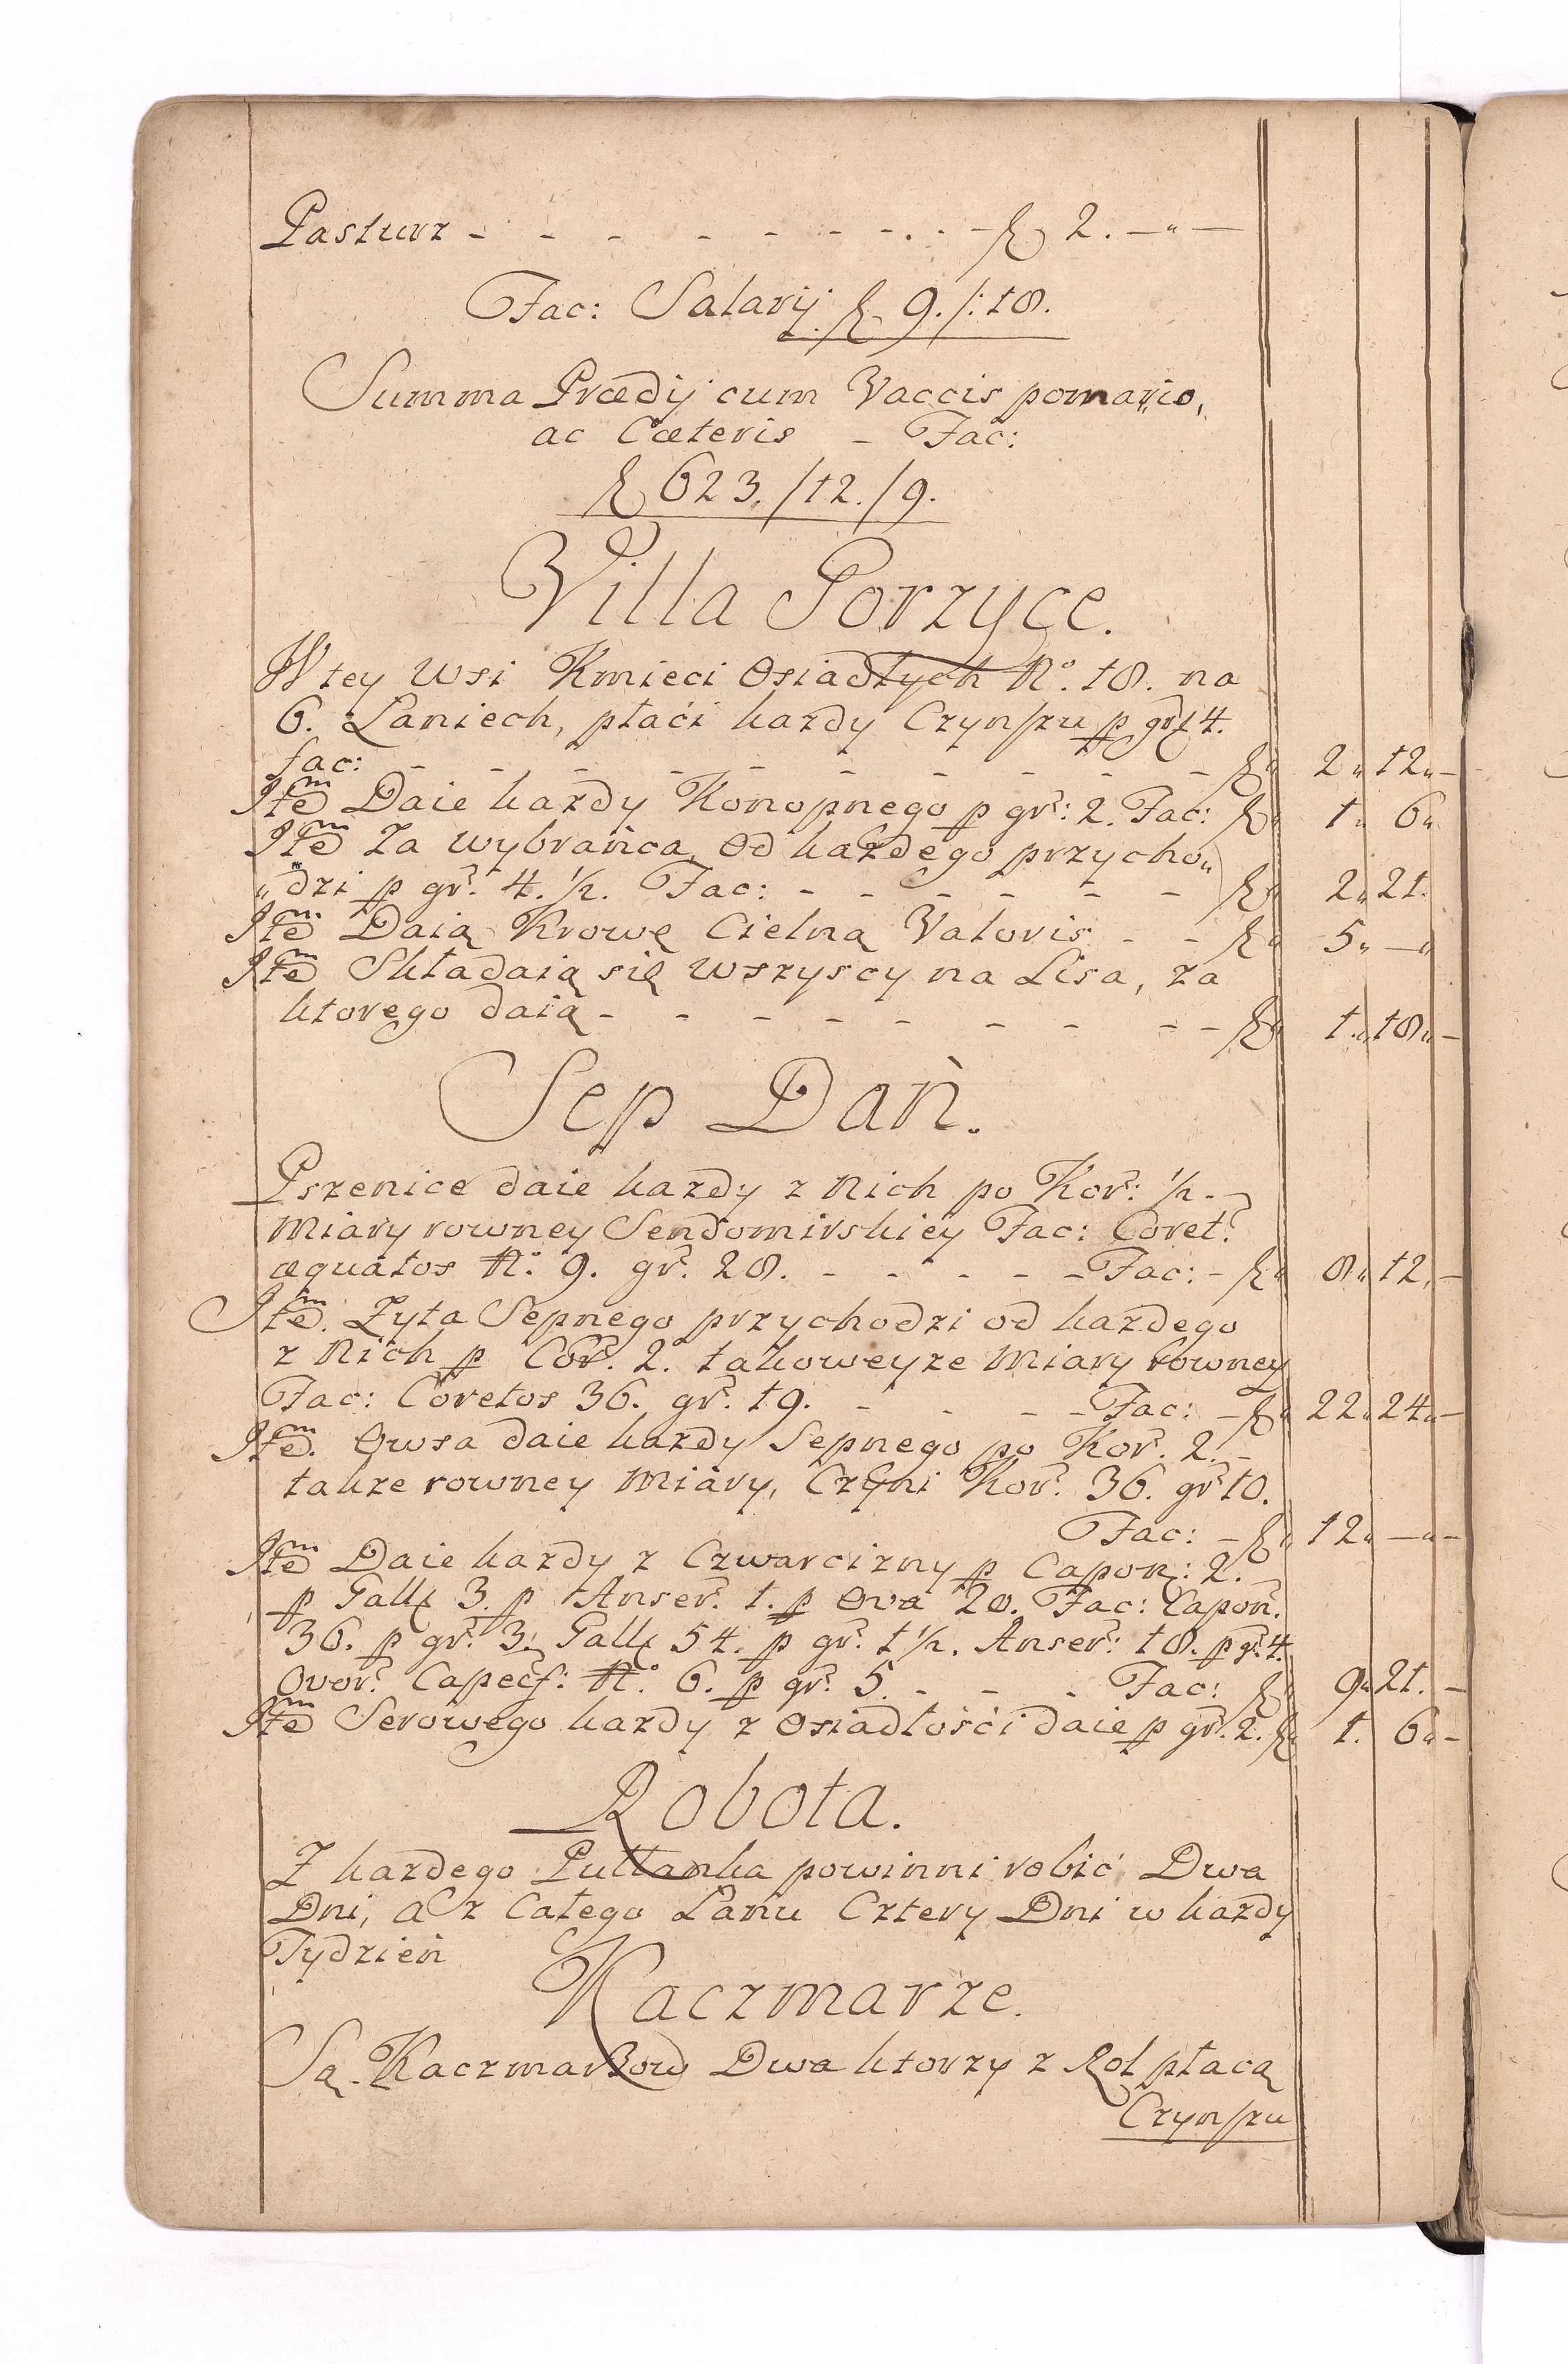 Pasturz - - - - - - - . - - fl 2. — " —
Fac: Salarij fl. 9./:18.
Summa Prædij cum Vaccis pomario,
ac Cæteris - Fac:
fl 623./12./9.
Villa Gorzyce.
W tey wsi Kmieci Osiadłych No. 18. na
6. Laniech, płaci każdy Czynszu p gr 4.
fac: - - - - - - - - - - fl 2 " 12 " -
Itẽm Daie każdy Konopnego p gr: 2. Fac: fl 1 " 6 "
Itẽm Za wybrańca, Od każdego przycho„
„dzi p gr. 4. 1/2. Fac: - - - - - - fl 2 " 21.
Itẽm Daią Krowę Cielną Valoris - - fl 5 " — "
Itẽm Składaią się wszyscy na Lisa, za
ktorego daią - - - - - - - - - fl 1 " 18 " -
Sep Dań.
Pszenice daie każdy z Nich po Kor: 1/2. -
Miary rowney Sendomirskiey Fac: Coret.
æquatos No. 9. gr. 28. - - - - - Fac: - fl 8 " 12 " -
Itẽm. Zyta Sepnego przychodzi od każdego
z Nich p Cor. 2. takoweyze Miary rowney
Fac: Coretos 36. gr. 19. - - - - Fac: - fl 22 " 24 " -
Itẽm. Owsa daie każdy Sepnego po Kor. 2. -
takze rowney Miary, Czyni Kor. 36. gr 10.
Fac: - fl 12 " — " -
Itẽm Daie każdy z Czwarcizny p Capon: 2.
p Gall 3. p Anser. 1. p Ova 20. Fac: Capon.
36. p gr. 3. Gall 54. p gr. 1 1/2. Anser: 18. p gr. 4.
Ovor. Capec: No. 6. p gr. 5. - - - Fac: fl 9 " 21. -
Itẽm Serowego każdy z Osiadłości daie p gr. 2. fl 1. 6 " -
Robota.
Z każdego Pułłanka powinni robić Dwa
Dni, a z Całego Łanu Cztery Dni w każdy
Tydzień
Kaczmarze.
Są Kaczmarzow Dwa ktorzy z Rol płacą
Czynszu